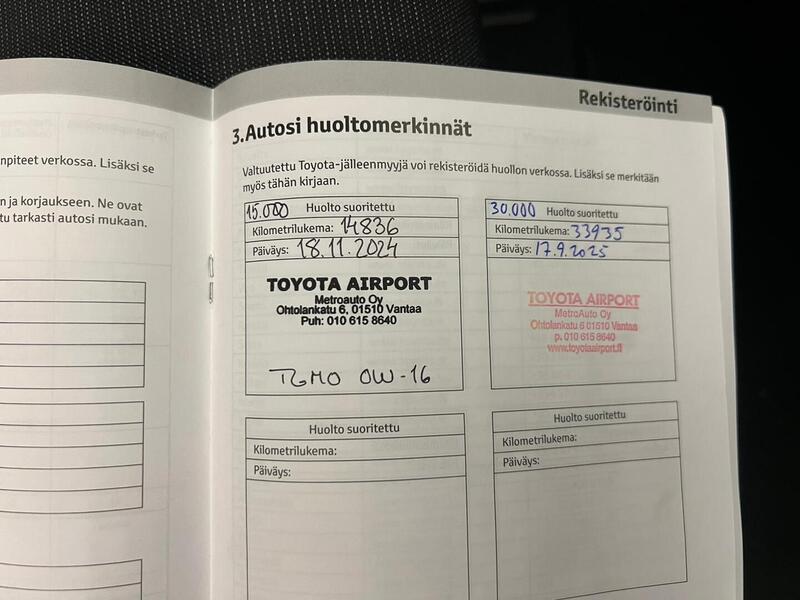 Rekisteröinti
npiteet verkossa. Lisäksi se
n ja korjaukseen. Ne ovat
tu tarkasti autosi mukaan.
3. Autosi huoltomerkinnät
Valtuutettu Toyota-jälleenmyyjä voi rekisteröidä huollon verkossa. Lisäksi se merkitään
myös tähän kirjaan.
15.000 Huolto suoritettu
Kilometrilukema: 14836
Päiväys: 18.11.2024
TOYOTA AIRPORT
Metroauto Oy
Ohtolankatu 6, 01510 Vantaa
Puh: 010 615 8640
OW-16
30.000 Huolto suoritettu
Kilometrilukema: 33935
Päiväys: 17.9.2025
TOYOTA AIRPORT
MetroAuto Oy
Ohtolankatu 6 01510 Vantaa
p. 010 615 8640
www.toyotaairport.fi
Huolto suoritettu
Kilometrilukema:
Päiväys:
Huolto suoritettu
Kilometrilukema:
Päiväys: